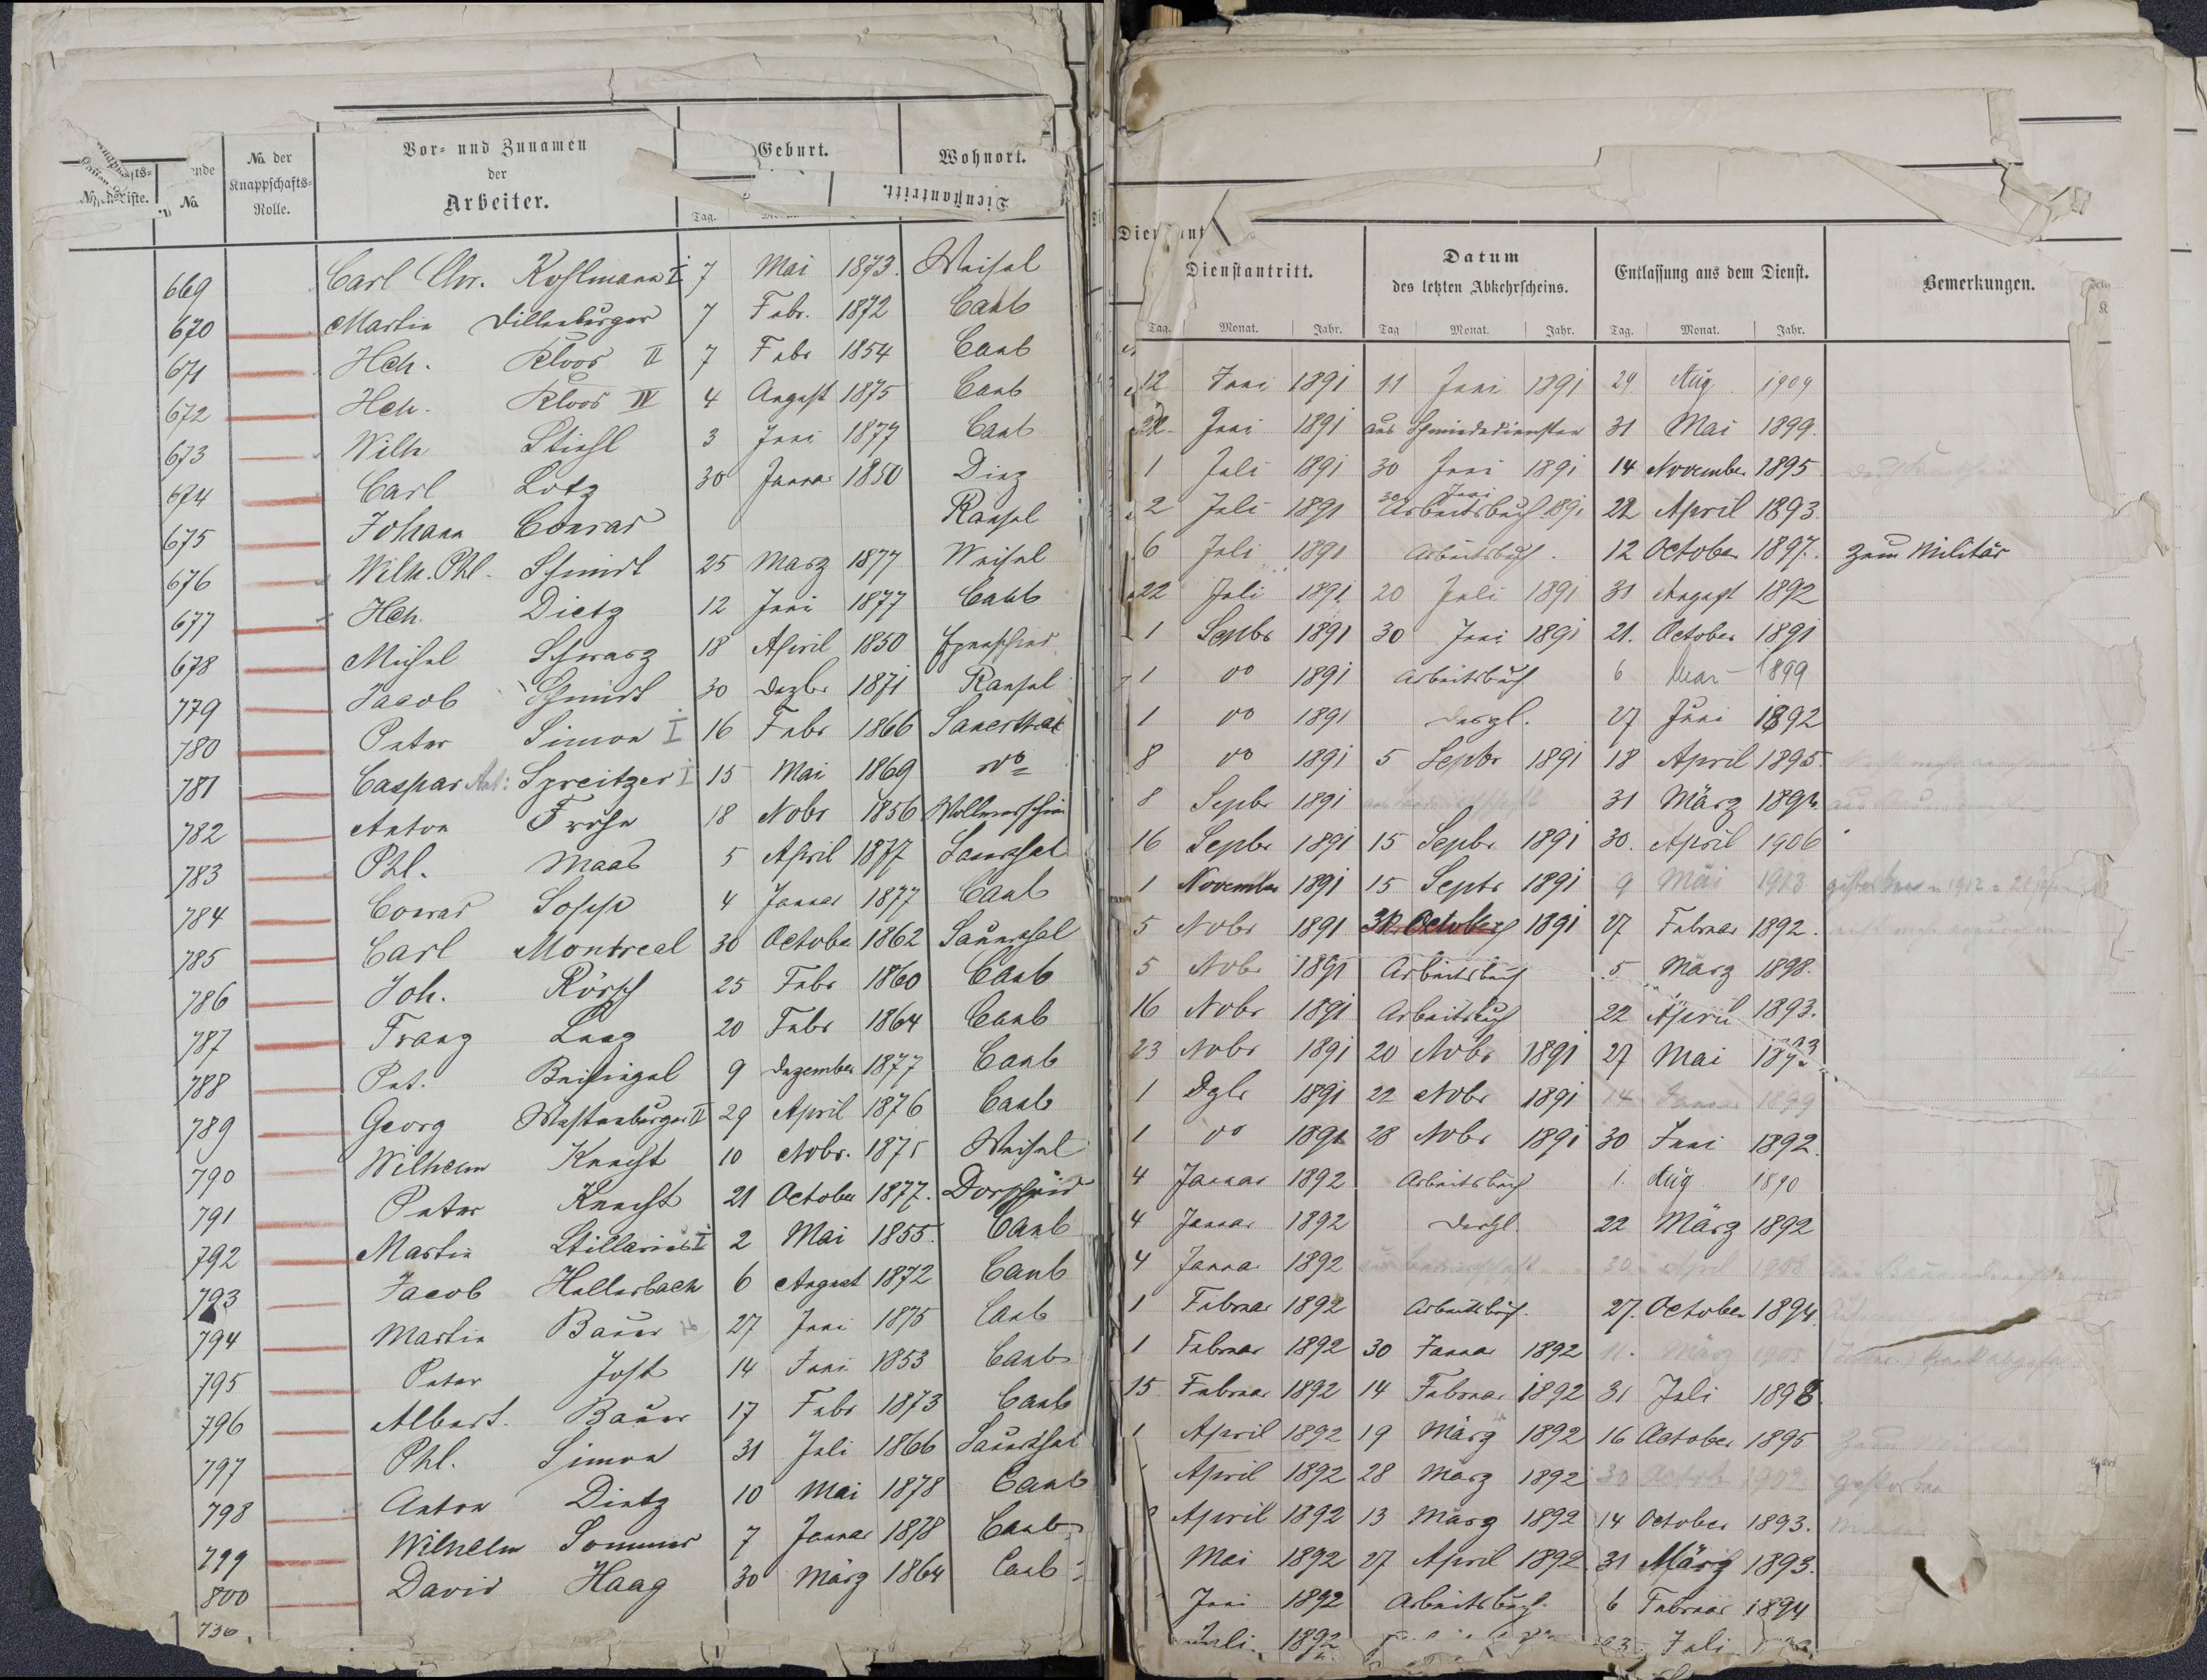 No. der Knappschafts-Rolle.
Vor- und Zunamen der Arbeiter.
Geburt.
Wohnort.
No.
Tag.
Dienstantritt.
669 Carl Chr. Kohlmann I 7 Mai 1873. Weisel
670 Martin Dillenburger 7 Febr. 1872 Caub
671 Hch. Kloos II 7 Febr 1854 Caub
672 Hch. Kloos IV 4 August 1875 Caub
673 Wilh Stiehl 3 Juni 1877 Caub
674 Carl Lotz 30 Januar 1850 Diez
675 Johann Conrad Ransel
676 Wilh. Phl. Schmidt 25 März 1877 Weisel
677 Hch. Dietz 12 Juni 1877 Caub
678 Michel Schwarz 18 April 1850
779 Jacob Schmidt 30 Dezbr 1871 Ransel
780 Peter Simon I 16 Febr 1866 Sauerthal
781 Caspar Ant: Spreitzer I 15 Mai 1869 do
782 Anton Frohn 18 Nobr 1856
783 Phl. Maas 5 April 1877 Sauerthal
784 Conrad Sopp 4 Januar 1877 Caub
785 Carl Montreal 30 October 1862 Sauerthal
786 Joh. Rörsch 25 Febr 1860 Caub
787 Franz Laaz 20 Febr 1864 Caub
788 Pet. Beisiegel 9 Dezember 1877 Caub
789 Georg Westenburger II 29 April 1876 Caub
790 Wilhelm Knecht 10 Nobr. 1875 Weisel
791 Peter Knecht 21 October 1877. Dörscheid
792 Martin Stillarius I 2 Mai 1855. Caub
793 Jacob Hellerbach 6 August 1872 Caub
794 Martin Bauer 27 Juni 1875 Caub
795 Peter Jost 14 Juni 1853 Caub
796 Albert. Bauer 17 Febr 1873 Caub
797 Phl. Simon 31 Juli 1866 Sauerthal
798 Anton Dietz 10 Mai 1878 Caub
799 Wilhelm Sommer 7 Januar 1878 Caub
800 David Haag 30 März 1864 Caub
736.
Dienstantritt.
Datum des letzten Abkehrscheins.
Entlassung aus dem Dienst.
Bemerkungen.
Tag. Monat. Jahr. Tag Monat. Jahr. Tag. Monat. Jahr.
12 Juni 1891 11 Juni 1891 29 Aug 1909
Juni 1891 aus Schmiededienster 31 Mai 1899.
1 Juli 1891 30 Juni 1891 14 November 1895
2 Juli 1891 30 Juni Arbeitsbuch 1891 22 April 1893.
6 Juli 1891 Arbeitsbuch. 12 October 1897. zum Militär
22 Juli 1891 20 Juli 1891 31 August 1892
1 Septbr 1891 30 Juni 1891 21. October 1891
1 do 1891 Arbeitsbuch 6 1899
1 do 1891 dergl. 27 Juni 1892
8 do 1891 5 Septbr 1891 18 April 1895.
8 Septbr 1891 31 März
16 Septbr 1891 15 Septbr 1891 30. April 1906
1 November 1891 15 Septbr 1891 9 Mai 1913
5 Nobr 1891 October 1891 27 Februar 1892.
5 Nobr 1891 Arbeitsbuch 5 März 1898.
16 Nobr 1891 Arbeitsbuch 22 April 1893.
23 Nobr 1891 20 Nobr 1891 27 Mai
1 Dzbr 1891 22 Nobr 1891 14 Januar 1899
1 do 1891 28 Nobr 1891 30 Juni 1892.
4 Januar 1892 Arbeitsbuch 1. Aug 1890
4 Januar 1892 dergl. 22 März 1892
4 Januar 1892 30 April 1908
1 Februar 1892 Arbeitsbuch. 27. October 1894.
1 Februar 1892 30 Januar 1892 11. März 1905
15 Februar 1892 14 Februar 1892 31 Juli 1898.
1 April 1892 19 März 1892 16 October 1895
April 1892 28 März 1892 30 October 1902 gestorben
April 1892 13 März 1892 14 October 1893.
Mai 1892 27 April 1892 31 März 1893.
Juni 1892 Arbeitsbuch. 6 Februar 1894
Juli 1892 Juli